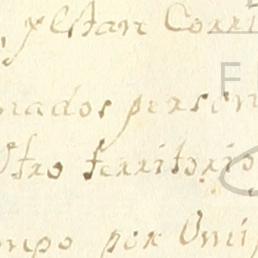 y estar Corri
nados person
Otro territorio
mpo por Omi